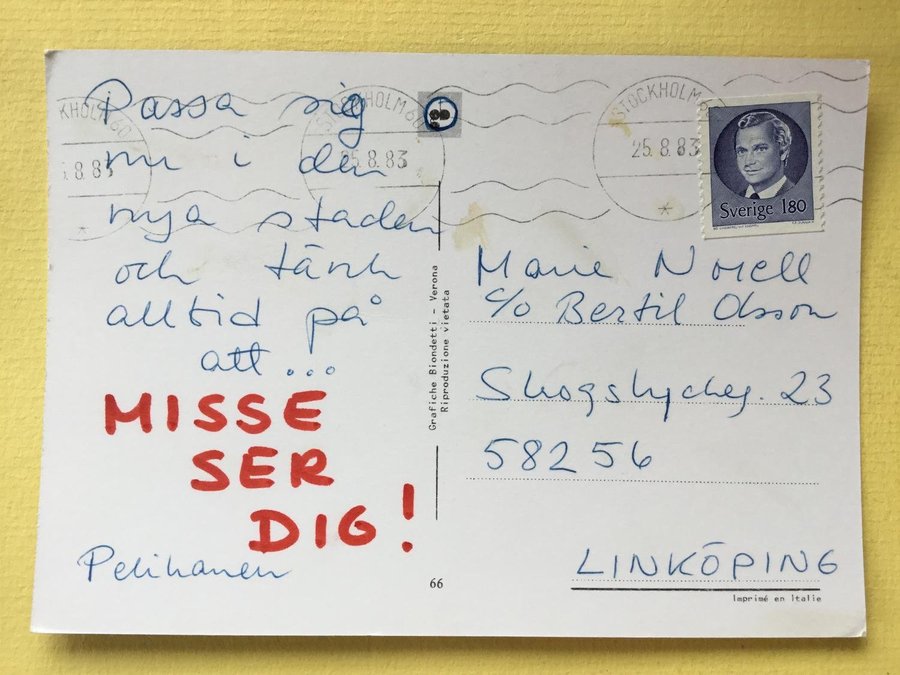 Passa sig
nu i den
nya staden
och tänk
alltid på
att...
MISSE
SER
DIG!
Pelikanen
KHOLM 60
5.8.83
HOLM 6
25.8.83
STOCKHOLM 6
25.8.83
Sverige 180
Marie Norell
c/o Bertil Olsson
Skogslyckeg. 23
58256
LINKÖPING
Grafiche Biondetti - Verona
Riproduzione vietata
66
Imprimé en Italie